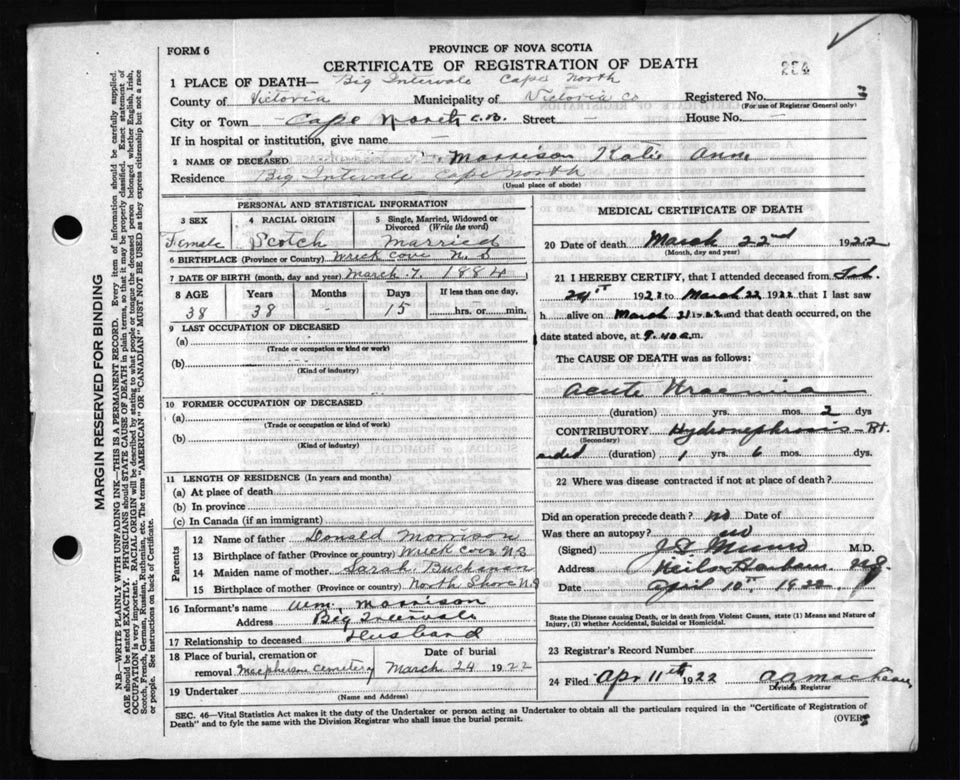 FORM 6
PROVINCE OF NOVA SCOTIA
CERTIFICATE OF REGISTRATION OF DEATH
254
1 PLACE OF DEATH— Big Intervale Cape North
County of Victoria Municipality of Victoria Co Registered No.
(For use of Registrar General only)
City or Town - Cape North C.B. Street — House No. —
If in hospital or institution, give name —
2 NAME OF DECEASED Morrison Katie Ann
Residence Big Intervale Cape North
(Usual place of abode)
PERSONAL AND STATISTICAL INFORMATION
3 SEX Female
4 RACIAL ORIGIN Scotch
5 Single, Married, Widowed or Divorced (Write the word) Married
6 BIRTHPLACE (Province or Country) Wreck Cove N.S
7 DATE OF BIRTH (month, day and year) March 7. 1884
8 AGE Years Months Days If less than one day,
38 38 - 15 hrs. or min.
9 LAST OCCUPATION OF DECEASED
(a)
(Trade or occupation or kind of work)
(b)
(Kind of industry)
10 FORMER OCCUPATION OF DECEASED
(a)
(Trade or occupation or kind of work)
(b)
(Kind of industry)
11 LENGTH OF RESIDENCE (In years and months)
(a) At place of death
(b) In province
(c) In Canada (if an immigrant)
Parents
12 Name of father Donald Morrison
13 Birthplace of father (Province or country) Wreck Cove N.S
14 Maiden name of mother Sarah Buchanan
15 Birthplace of mother (Province or country) North Shore N.S
16 Informant's name Wm. Morrison
Address Big Intervale
17 Relationship to deceased Husband
18 Place of burial, cremation or removal Mcpherson Cemetery Date of burial March 24 1922
19 Undertaker
(Name and Address)
MEDICAL CERTIFICATE OF DEATH
20 Date of death March 22nd 1922
(Month, day and year)
21 I HEREBY CERTIFY, that I attended deceased from Feb.
24th 1922 to March 22, 1922 that I last saw
h alive on March 21 1922 and that death occurred, on
date stated above, at 9.40 a.m.
The CAUSE OF DEATH was as follows:
Acute Uraemia
(duration) yrs. mos. 2 dys
CONTRIBUTORY Hydronephrosis - Rt.
(Secondary)
(duration) 1 yrs. 6 mos. dys.
22 Where was disease contracted if not at place of death?
Did an operation precede death? no Date of
Was there an autopsy? no
(Signed) M.D.
Address Neils Harbour N.S.
Date April 10th 1922
State the Disease causing Death, or in death from Violent Causes, state (1) Means and Nature of
Injury, (2) whether Accidental, Suicidal or Homicidal.
23 Registrar's Record Number
24 Filed Apr 11th 1922
Division Registrar
SEC. 46—Vital Statistics Act makes it the duty of the Undertaker or person acting as Undertaker to obtain all the particulars required in the "Certificate of Registration of
Death" and to fyle the same with the Division Registrar who shall issue the burial permit. (OVER)
MARGIN RESERVED FOR BINDING
N.B.—WRITE PLAINLY WITH UNFADING INK—THIS IS A PERMANENT RECORD. Every item of information should be carefully supplied.
AGE should be stated EXACTLY. PHYSICIANS should STATE CAUSE OF DEATH in plain terms, so that it may be properly classified. Exact statement of
OCCUPATION is very important. RACIAL ORIGIN will be described by stating to what people or tongue the deceased person belonged whether English, Irish,
Scotch, French, German, Russian, Ruthenian, etc. The terms "AMERICAN" OR "CANADIAN" MUST NOT BE USED as they express citizenship but not a race
or people. See instructions on back of Certificate.